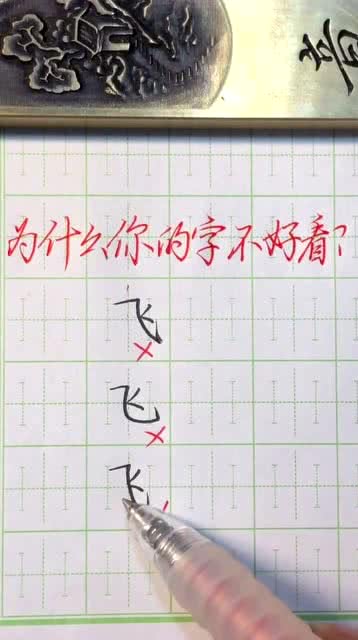 为什么你的字不好看?
飞
×
飞
×
飞